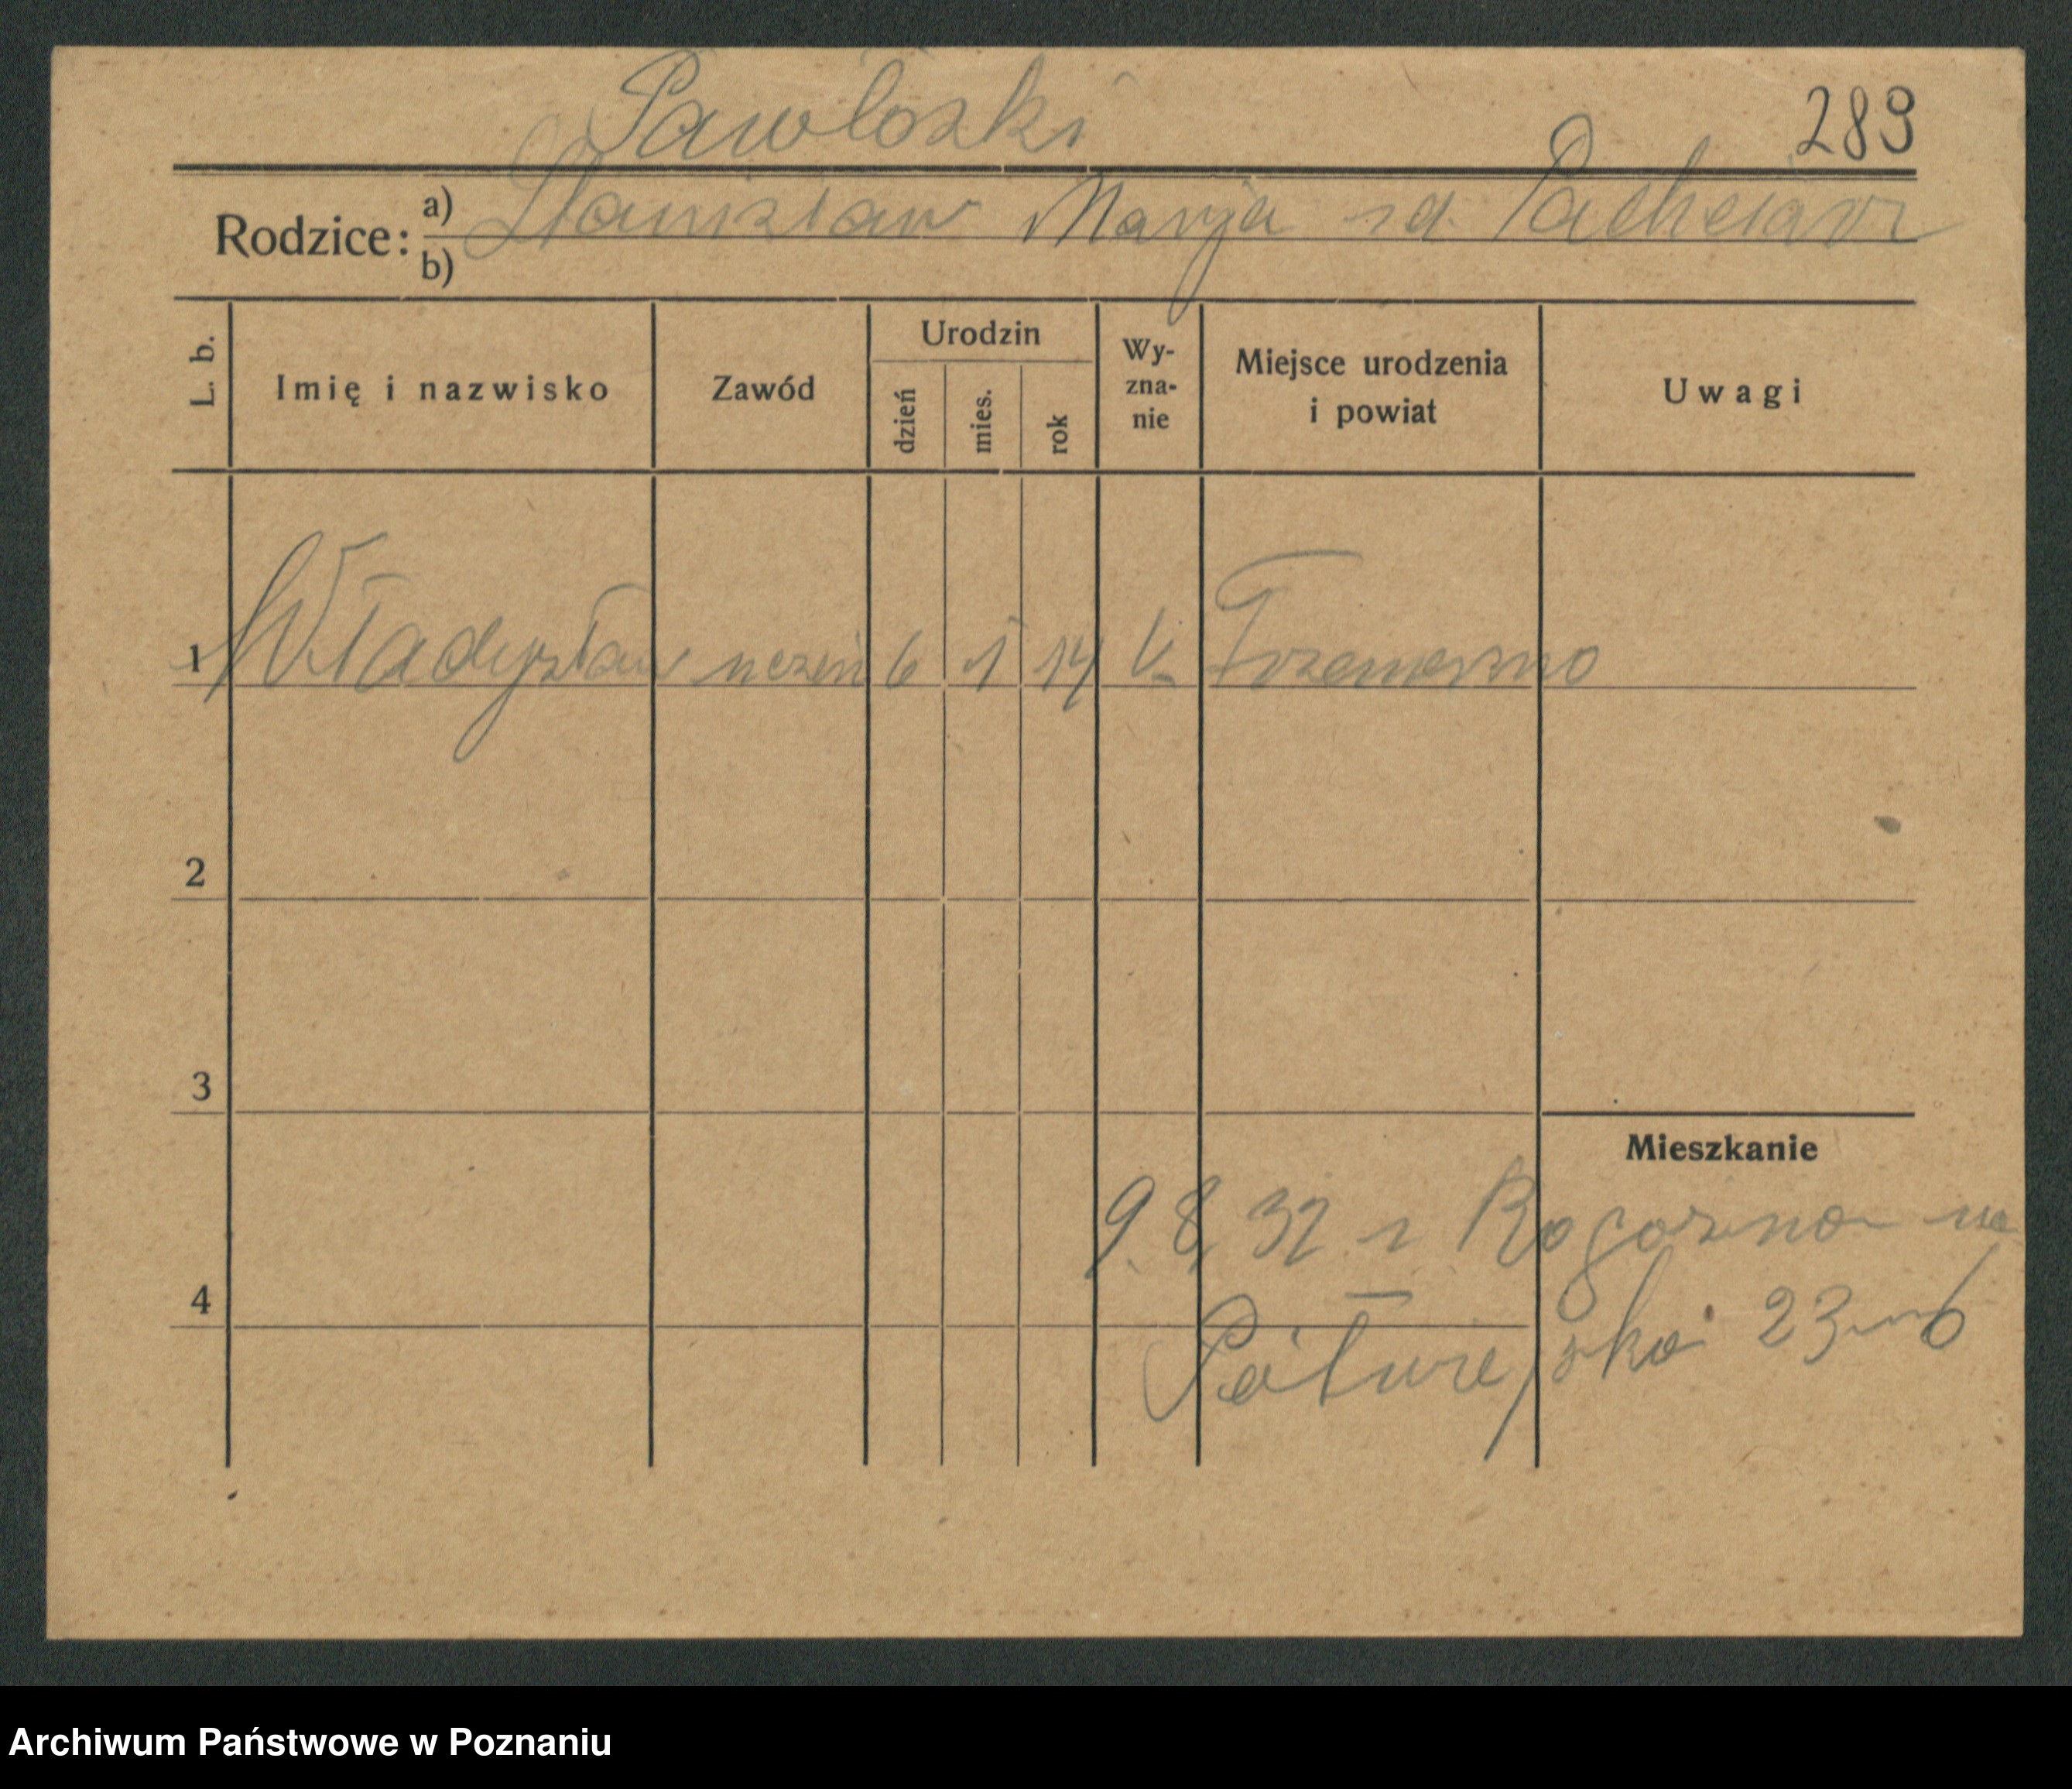 Pawłoski
289
Rodzice: a) Stanisław Marja zd.
b)
L. b. Imię i nazwisko Zawód Urodzin dzień mies. rok Wy-zna-nie Miejsce urodzenia i powiat Uwagi
1 Władysław uczeń 6 1 14 k. Trzemeszno
2
3
Mieszkanie
9. 8. 32 z Rogozno na
4
23 m 6
Archiwum Państwowe w Poznaniu